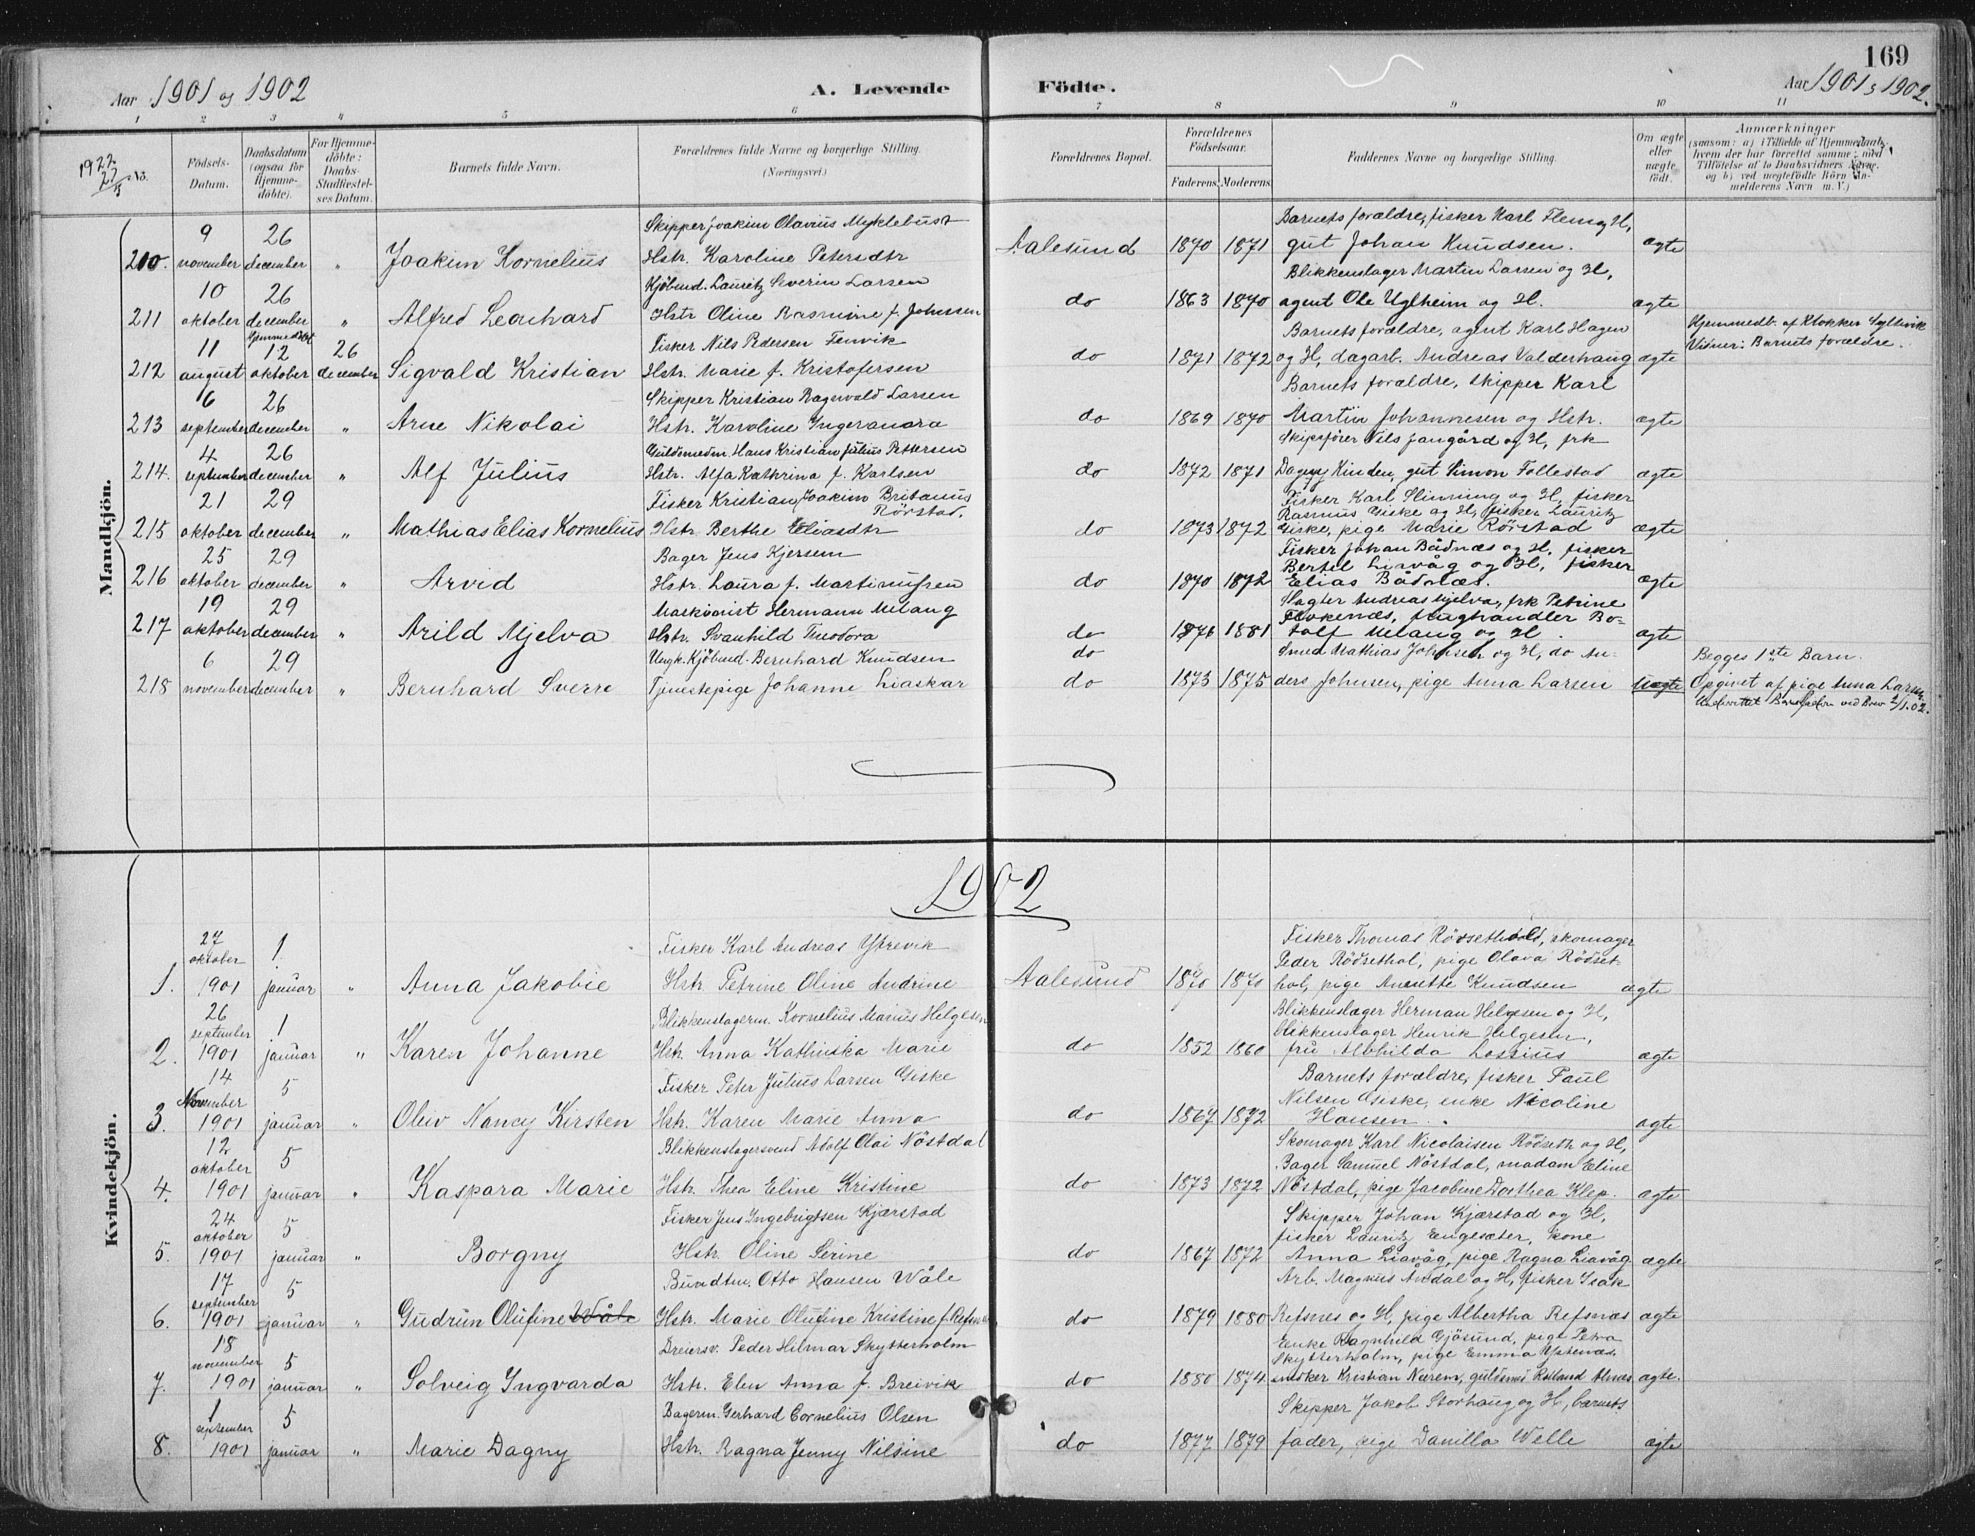 169
Aar 1901 og 1902 A. Levende Födte. Aar 1901 & 1902.
1 2 3 4 5 6 7 8 9 10 11
No. Födsels-Datum. Daabsdatum (ogsaa for Hjemme-döbte). For Hjemme-döbte: Daabs-Stadfæstel-ses Datum. Barnets fulde Navn. Forældrenes fulde Navne og borgerlige Stilling. (Næringsvei) Forældrenes Bopæl. Forældrenes Födselsaar. Faderens Moderens Faddernes Navne og borgerlige Stilling. Om ægte eller uægte födt. Anmærkninger
(saasom: a) i Tilfælde af Hjemmedaab:
hvem der har forrettet samme; med
Tilföielse af to Daabsvidners Navne,
og b) ved uægtefödte Börn An-
melderens Navn m. V.)
Mandkjön.
210. 9 november 26 december " Joakim Kornelius Skipper Joakim Olavius Myklebust
Hstr. Karoline Petersdtr Aalesund 1870 1871 Barnets forældre, fisker Karl Flem og H,
gut Johan Knudsen. ægte
211 10 oktober 26 december " Alfred Leonhard Kjöbmd. Lauritz Severin Larsen
Hstr Oline Rasmine f. Johnsen do 1863 1870 Blikkenslager Martin Larsen og H,
agent Ole Uglheim og H. ægte
212 11 august Hjemmedöbt 12 oktober 26 december Sigvald Kristian Fisker Nils Pedersen Fenvik
Hstr. Marie f. Kristofersen do 1871 1872 Barnets forældre, agent Karl Hagen
og H, dagarb. Andreas Valderhaug ægte Hjemmedb. af Klokker
Vidner: Barnets forældre.
213 6 september 26 december " Arne Nikolai Skipper Kristian Ragnvald Larsen
Hstr. Karoline Ingeranora do 1869 1870 Barnets forældre, skipper Karl
Martin Johannesen og Hstr. ægte
214. 4 september 26 december " Alf Julius Guldsmedm. Hans Kristian Julius Pettersen
Hstr. Alfa Kathrina f. Karlsen do 1872 1871 Skipsförer Nils Jangård og H, frk
Dagny Kinden, gut Simon Follestad ægte
215 21 oktober 29 december " Mathias Elias Kornelius Fisker Kristian Joakim Britanus
Rörstad.
Hstr. Berthe Eliasdtr do 1873 1872 Fisker Karl Slinning og H, fisker
Rasmus Giske og H, fisker Lauritz
Giske, pige Marie Rörstad ægte
216 25 oktober 29 december " Arvid Bager Jens Kjersem
Hstr. Laura f. Martinussen do 1870 1872 Fisker Johan Bådnæs og H, fisker
Bertel Livåg og H, fisker
Elias Bådnæs. ægte
217 19 oktober 29 december " Arild Mjelva Maskinist Hermann Melang
Hstr. Svanhild Theodora do 1876 1881 Slagter Andreas Mjelva, frk Petrine
Flokenæs, Bo-
tolf Melang og H. ægte
218 6 november 29 december " Bernhard Sverre Ungk. Kjöbmd. Bernhard Knudsen
Tjenestepige Johanne Liaskar do
do 1873 1875 Smed Mathias Johnsen og H, do An-
ders Johnsen, pige Anna Larsen uægte Begges 1ste Barn.
Opgivet af pige Anna Larsen
1902
Kvindekjön.
1. 27 oktober 1901 1 januar " Anna Jakobie Fisker Karl Andreas Ytrevik
Hstr. Petrine Oline Andrine Aalesund 1870 1870 Fisker Thomas Rödsethol, skomager
Peder Rödsethol, pige Olava Rödset-
hol, pige Anette Knudsen ægte
2. 26 september 1901 1 januar " Karen Johanne Blikkenslagerm. Kornelius Marius Helgesen
Hstr. Anna Kathinka Marie do 1852 1860 Blikkenslager Herman Helgesen og H,
blikkenslager Henrik Helgesen,
fru Alvhilda Lossius ægte
3. 14 November 1901 5 januar " Oleiv Nancy Kirsten Fisker Peter Julius Larsen Giske
Hstr. Karen Marie Anna do 1867 1872 Barnets forældre, fisker Paul
Nilsen Giske, enke Nicoline
Hansen. ægte
4. 12 oktober 1901 5 januar " Kaspara Marie Blikkenslagersvend Adolf Olai Nöstdal
Hstr. Thea Eline Kristine do 1873 1872 Skomager Karl Nicolaisen Rödseth og H,
Bager Samuel Nöstdal, madam Eline
Nöstdal, pige Jacobine Dorthea Klep. ægte
5. 24 oktober 1901 5 januar " Borgny Fisker Jens Ingebrigtsen Kjærstad
Hstr. Oline Serine do 1867 1872 Skipper Johan Kjærstad og H,
fisker Lauritz Engesæter, kone
Anna Liavåg, pige Ragna Liavåg. ægte
6. 17 september 1901 5 januar " Gudrun Olufine Wåle Bundtm. Otto Hansen Wåle
Hstr. Marie Olufine Kristine f. Refsnæs do 1879 1880 Arb. Magnus Andal og H, fisker Isak
Refsnes og H, pige Albertha Refsnæs ægte
7. 18 november 1901 5 januar " Solveig Ingvarda Dreiersv. Peder Hilmar Skytterholm
Hstr. Elen Anna f. Breivik do 1880 1874 Enke Ragnhild Gjösund, pige Petra
Skytterholm, pige Emma Uptenæs,
snekker Kristian Nærem, guldsmed Alnæs ægte.
8. 1 september 1901 5 januar " Marie Dagny Bagerm. Gerhard Cornelius Olsen
Hstr. Ragna Jenny Nilsine do 1877 1879 Skipper Jakob Storhaug og H, barnets
fader, pige Danilla Welle ægte